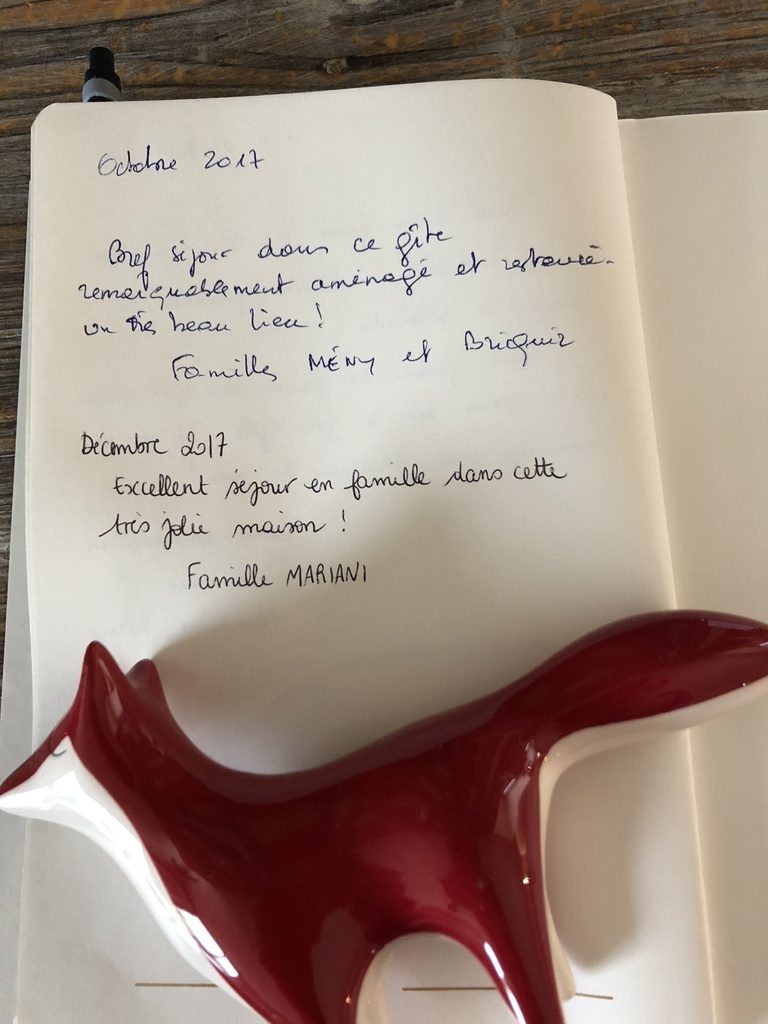 Octobre 2017
Bref séjour dans ce gîte
remarquablement aménagé et restauré.
un très beau lieu !
Familles MÉNY et
Décembre 2017
Excellent séjour en famille dans cette
très jolie maison !
Famille MARIANI